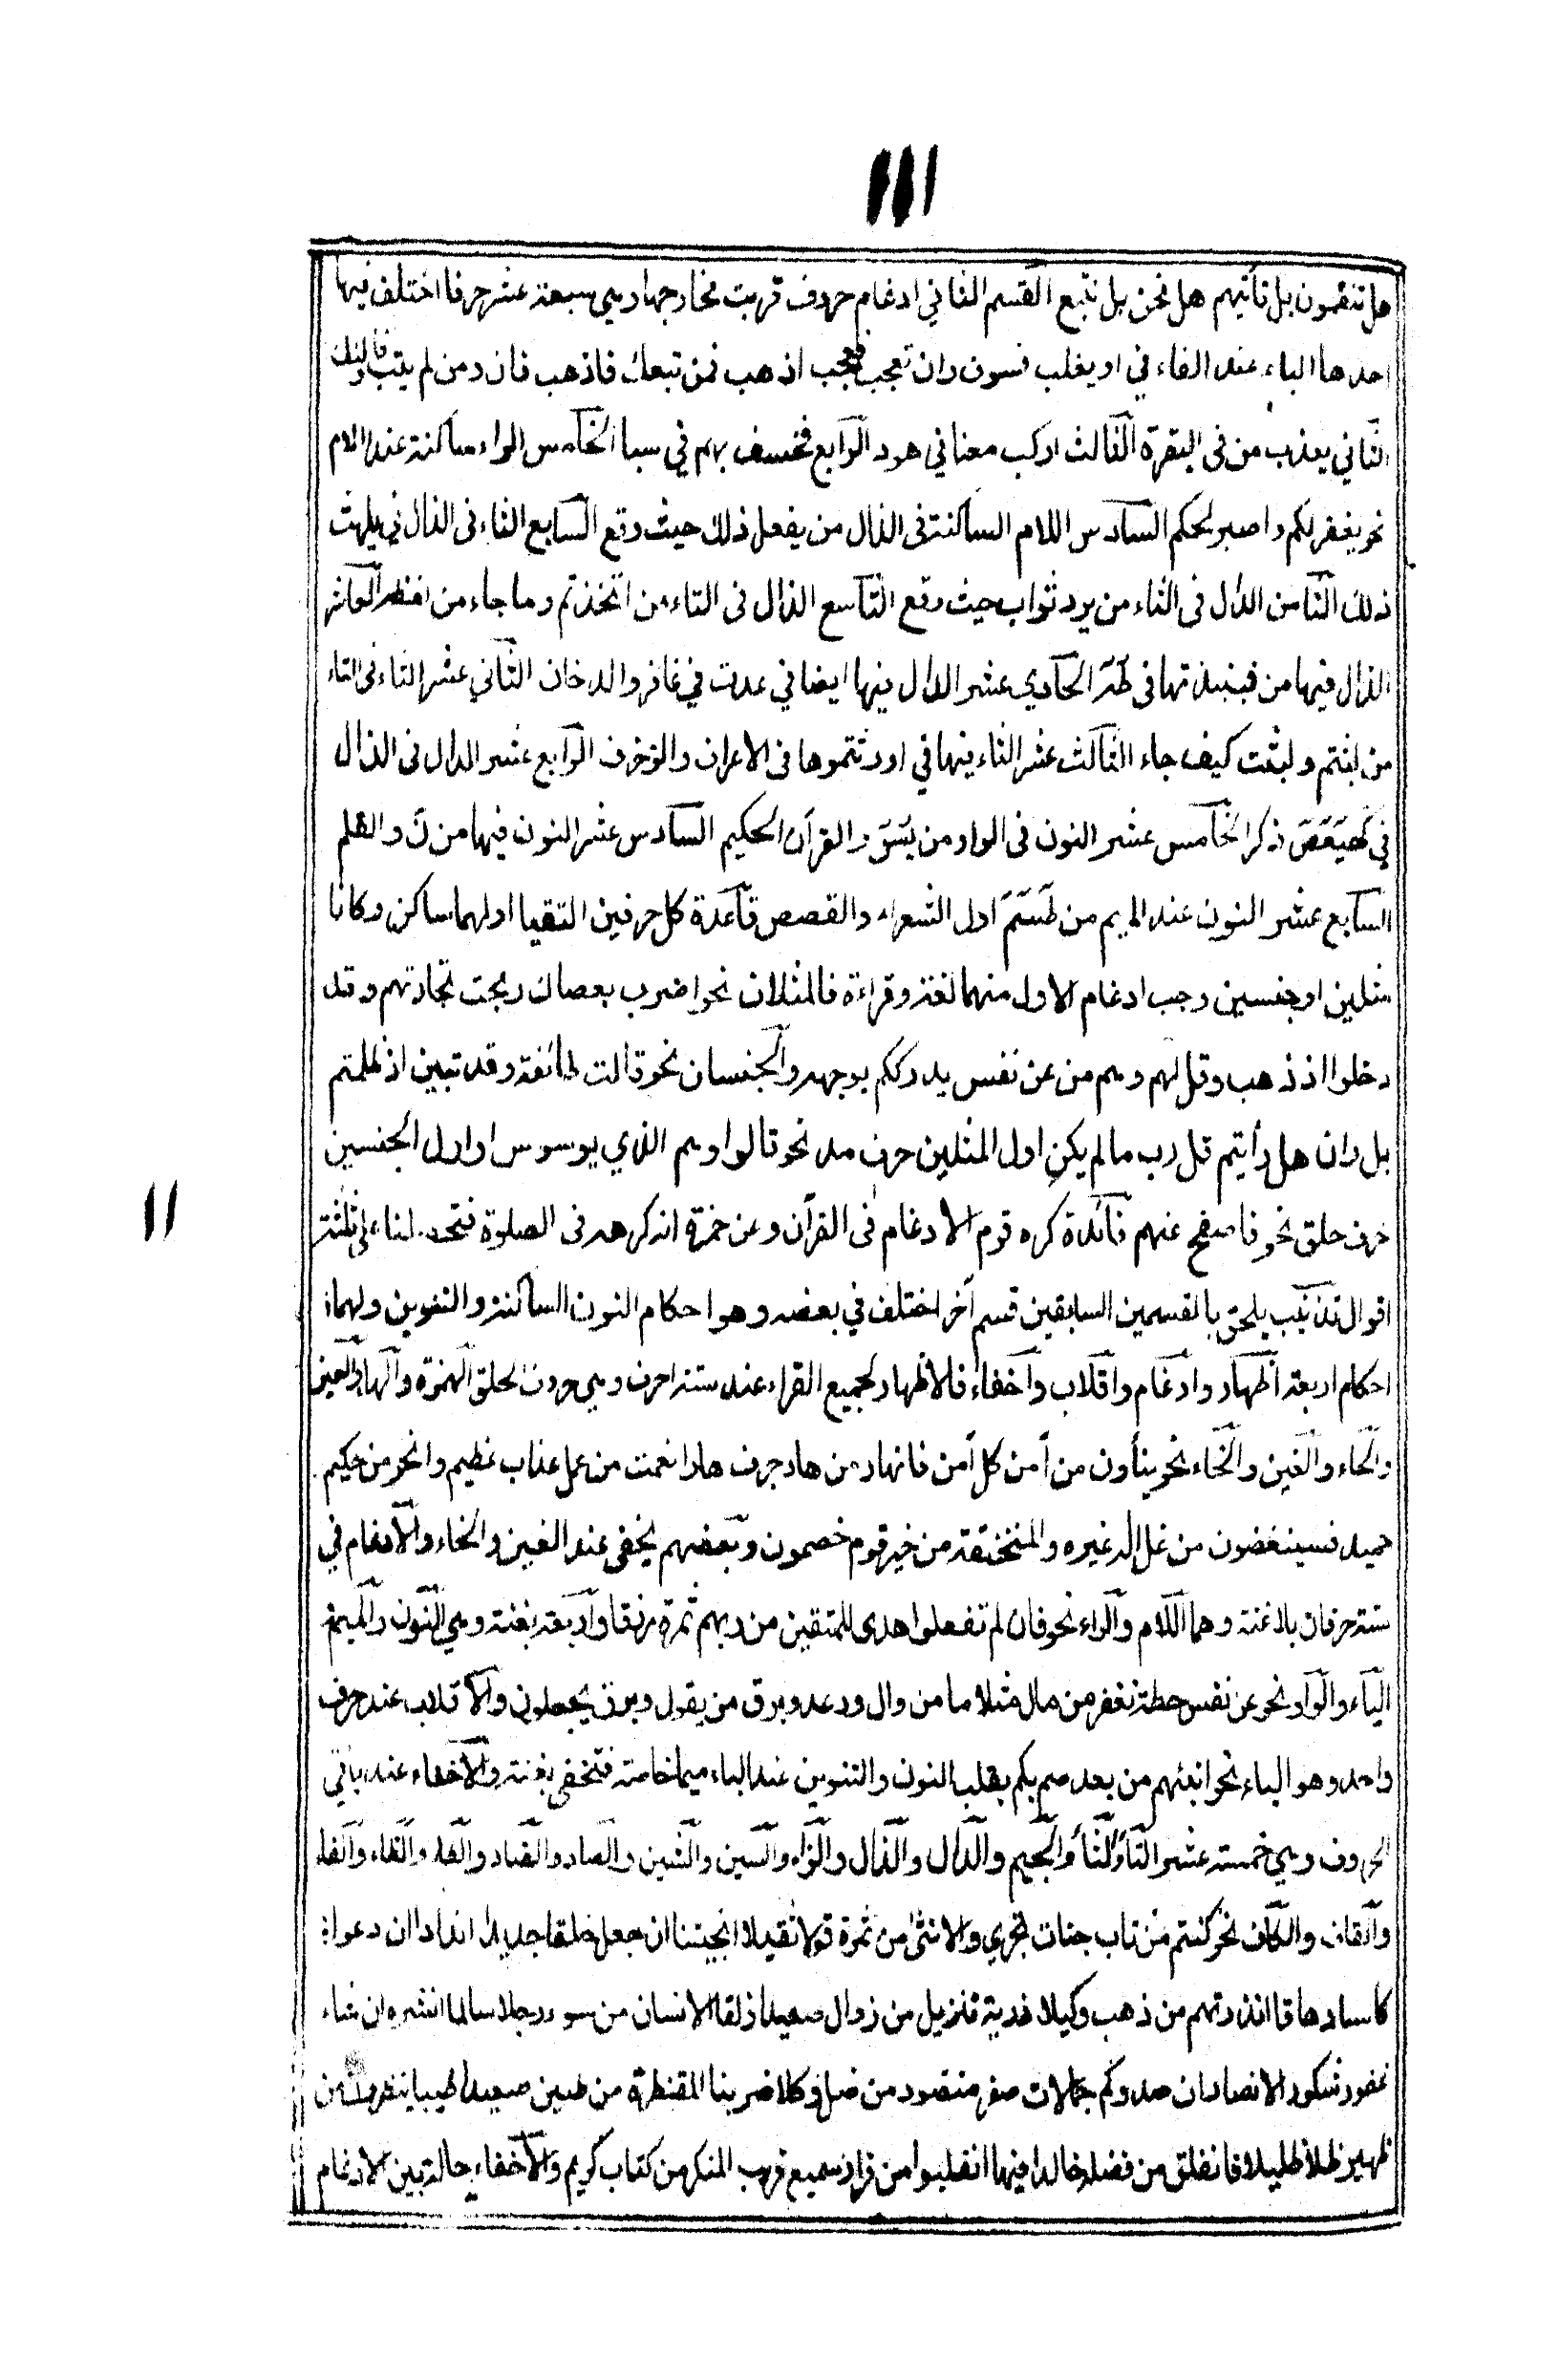 ١١١
هل تنقمون بل تأتيهم هل نحن بل نتبع القسم الثاني ادغام حروف قربت مخارجها وهي سبعة عشر حرفا اختلف فيها
احدها الباء عند الفاء في او يغلب فسوف وان تعجب فعجب اذهب فمن تبعك فاذهب فان ومن لم يتب فاولئك
الثاني يعذب من في البقرة الثالث اركب معنا في هود الرابع نخسف بهم في سبا الخامس الراء ساكنة عند اللام
نحو يغفر لكم واصبر لحكم السادس اللام الساكنة في الذال من يفعل ذلك حيث وقع السابع الثاء في الذال في يلهث
ذلك الثامن الدال في الثاء من يرد ثواب حيث وقع التاسع الذال في التاء من اتخذتم وما جاء من لفظه العاشر
الذال فيها من فنبذتها في طه الحادي عشر الذال فيها ايضا في عذت في غافر والدخان الثاني عشر الثاء في التاء
من لبثتم ولبثت كيف جاء الثالث عشر الثاء فيها في اورثتموها في الاعراف والزخرف الرابع عشر الدال في الذال
في كهيعص ذكر الخامس عشر النون في الواو من يس والقرآن الحكيم السادس عشر النون فيها من ن والقلم
السابع عشر النون عند الميم من طسم اول الشعراء والقصص قاعدة كل حرفين التقيا اولهما ساكن وكانا
مثلين او جنسين وجب ادغام الاول منهما لغة وقراءة فالمثلان نحو اضرب بعصاك ربحت تجارتهم وقد
دخلوا اذ ذهب وقل لهم وهم من عن نفس يدرككم يوجهه والجنسان نحو قالت طائفة وقد تبين اذ ظلمتم
بل ران هل رأيتم قل رب ما لم يكن اول المثلين حرف مد نحو قالوا وهم الذي يوسوس او اول الجنسين
حرف حلق نحو فاصفح عنهم فائدة كره قوم الادغام في القرآن وعن حمزة انه كرهه في الصلوة فتحصلنا على ثلثة
١١
اقوال تذنيب يلحق بالقسمين السابقين قسم آخر اختلف في بعضه وهو احكام النون الساكنة والتنوين ولهما
احكام اربعة اظهار وادغام واقلاب واخفاء فالاظهار لجميع القراء عند ستة احرف وهي حروف الحلق الهمزة والهاء والعين
والحاء والغين والخاء نحو ينأون من آمن كل آمن فانهار من هاد جرف هار انعمت من عمل عذاب عظيم وانحر من حكيم
حميد فسينغضون من غل اله غيره والمنخنقة من خير قوم خصمون وبعضهم يخفى عند الغين والخاء والادغام في
ستة حرفان بلا غنة وهما اللام والراء نحو فان لم تفعلوا هدى للمتقين من ربهم ثمرة رزقا واربعة بغنة وهي النون والميم
الياء والواو نحو عن نفس حطة نغفر من مال مثلا ما من وال ورعد وبرق من يقول وبرق يجعلون والاقلاب عند حرف
واحد وهو الباء نحو انبئهم من بعد صم بكم بقلب النون والتنوين عند الباء ميما خاصة فتخفى بغنة والاخفاء عند باقي
الحروف وهي خمسة عشر التاء والثاء والجيم والدال والذال والزاء والسين والشين والصاد والضاد والطاء والظاء والفاء
والقاف والكاف نحو كنتم من تاب جنات تجري والانثى من ثمرة قولا ثقيلا انجيتنا ان جعل خلقا جديدا اندادا ان دعوا
كاسا دهاقا انذرتهم من ذهب وكيلا ذرية تنزيل من زوال صعيدا زلقا الانسان من سوء ورجلا سالما انشره ان شاء
غفور شكور الانصار ان صدوكم جمالات صفر منضود من ضل وكلا ضربنا المقنطرة من طين صعيدا طيبا ينظرون من
ظهير ظلا ظليلا فانفلق من فضله خالدا فيها انقلبوا من قرار سميع قريب المنكر من كتاب كريم والاخفاء حالة بين الادغام